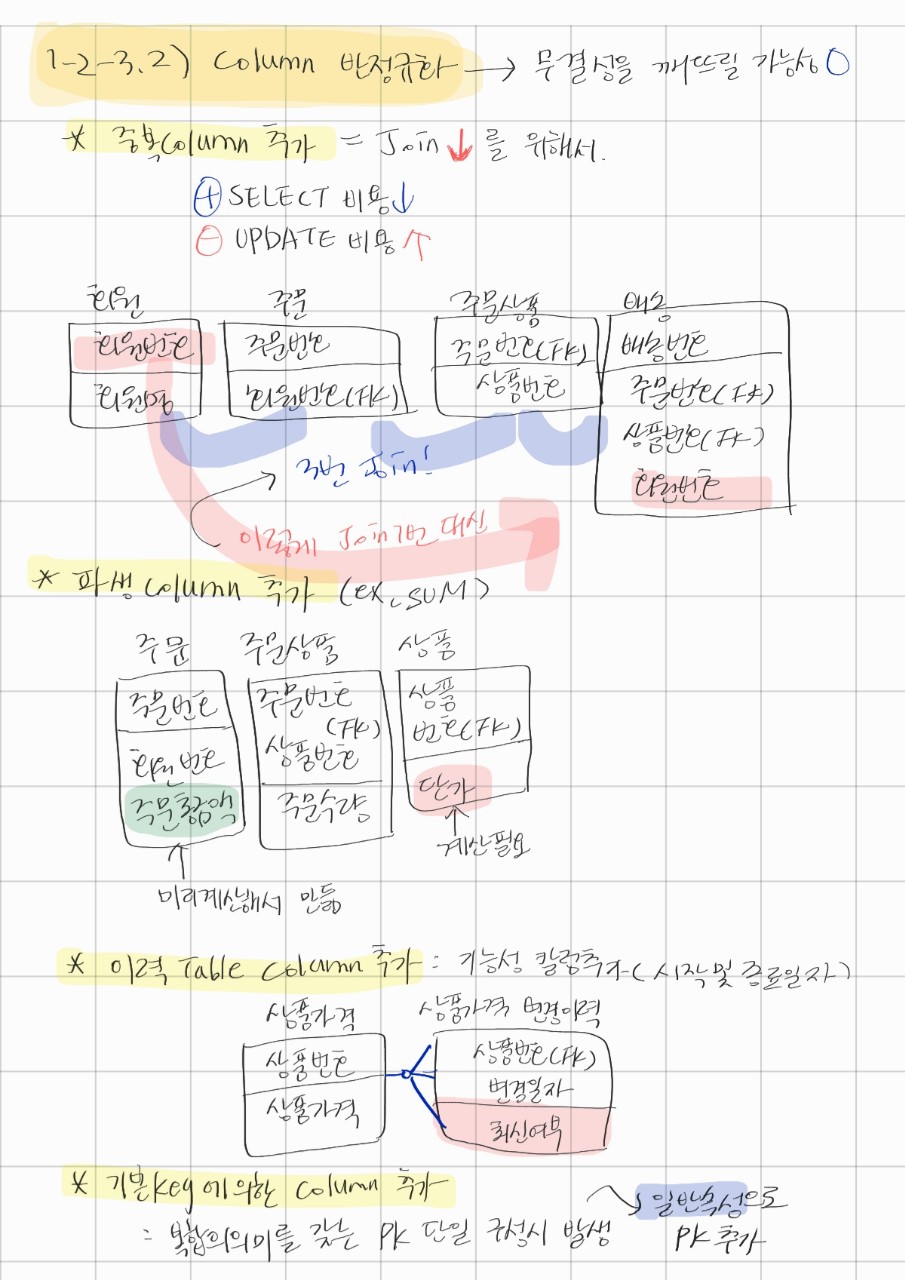 1-2-3.2) Column 반정규화 → 무결성을 깨뜨릴 가능성 O
* 중복Column 추가 = Join ↓ 를 위해서.
⊕ SELECT 비용 ↓
⊖ UPDATE 비용 ↑
회원 주문 주문상품 배송
회원번호 주문번호 주문번호(FK) 배송번호
회원명 회원번호(FK) 상품번호 주문번호(FK)
상품번호(FK)
회원번호
3번 Join!
이렇게 Join 1번 대신
* 파생 Column 추가 (ex. SUM)
주문 주문상품 상품
주문번호 주문번호 상품
(FK) 번호(FK)
회원번호 상품번호
주문총금액 주문수량 단가
계산필요
미리계산해서 만듦
* 이력 Table Column 추가 : 기능성 칼럼추가(시작 및 종료일자)
상품가격 상품가격 변경이력
상품번호 상품번호(FK)
변경일자
상품가격 최신여부
* 기본key에 의한 Column 추가
일반속성으로
: 복합의의미를 갖는 PK 단일 구성시 발생 PK 추가